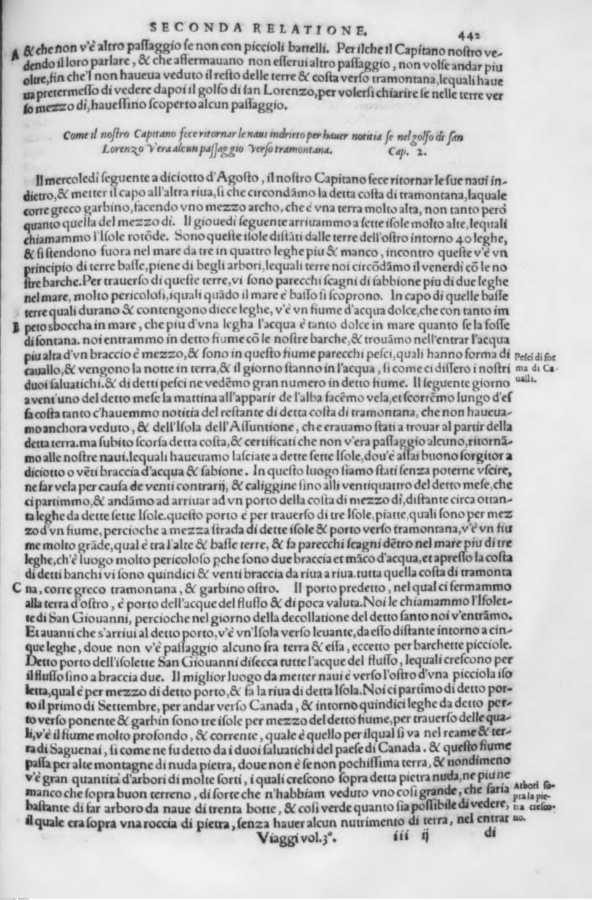 SECONDA RELATIONE.
442
A & che non v'è altro passaggio se non con piccioli battelli. Per ilche il Capitano nostro ve-
dendo il loro parlare, & che affermauano non esserui altro passaggio, non volse andar piu
oltre, fin che'l non haueua veduto il resto delle terre & costa verso tramontana, lequali haue
ua pretermesso di vedere dapoi il golfo di san Lorenzo, per volersi chiarire se nelle terre ver
so mezzo di, hauessino scoperto alcun passaggio.
Come il nostro Capitano fece ritornar le naui indrieto per hauer notitia se nel golfo di san
Lorenzo v'era alcun passaggio verso tramontana. Cap. 2.
Il mercoledi seguente a diciotto d'Agosto, il nostro Capitano fece ritornar le sue naui in-
dietro, & metter il capo all'altra riua, si che circondãmo la detta costa di tramontana, laquale
corre greco garbino, facendo vno mezzo archo, che è vna terra molto alta, non tanto però
quanto quella del mezzo di. Il giouedi seguente arriuammo a sette isole molto alte, lequali
chiamammo l'Isole rotõde. Sono queste isole distãti dalle terre dell'ostro intorno 40 leghe,
& si stendono fuora nel mare da tre in quattro leghe piu & manco, incontro queste v'è vn
principio di terre basse, piene di begli arbori, lequali terre noi circõdãmo il venerdi cõ le no
stre barche. Per trauerso di queste terre, vi sono parecchi scagni di sabbione piu di due leghe
nel mare, molto pericolosi, iquali quãdo il mare è basso si scoprono. In capo di quelle basse
terre quali durano & contengono diece leghe, v'è vn fiume d'acqua dolce, che con tanto im
B peto sboccha in mare, che piu d'vna legha l'acqua è tanto dolce in mare quanto se la fosse
di fontana. noi entrammo in detto fiume cõ le nostre barche, & trouãmo nell'entrar l'acqua
piu alta d'vn braccio è mezzo, & sono in questo fiume parecchi pesci, quali hanno forma di
cauallo, & vengono la notte in terra, & il giorno stanno in l'acqua, si come ci dissero i nostri
duoi saluatichi. & di detti pesci ne vedẽmo gran numero in detto fiume. Il seguente giorno
a vent'uno del detto mese la mattina all'apparir de l'alba facẽmo vela, et scorrẽmo lungo d'es
sa costa tanto c'hauemmo notitia del restante di detta costa di tramontana, che non haueua-
mo anchora veduto, & dell'Isola dell'Assuntione, che erauamo stati a trouar al partir della
detta terra. ma subito scorsa detta costa, & certificati che non v'era passaggio alcuno, ritornã-
mo alle nostre naui, lequali haueuamo lasciate a dette sette Isole, dou'è assai buono sorgitor a
diciotto o vẽti braccia d'acqua & sabione. In questo luogo siamo stati senza poterne vscire,
ne far vela per causa de venti contrarij, & caliggine sino alli ventiquattro del detto mese, che
ci partimmo, & andãmo ad arriuar ad vn porto della costa di mezzo dì, distante circa ottan-
ta leghe da dette sette Isole. questo porto è per trauerso di tre Isole, piatte, quali sono per mez
zo d'vn fiume, percioche a mezza strada di dette isole & porto verso tramontana, v'è vn fiu
me molto grãde, qual è tra l'alte & basse terre, & fa parecchi scagni dẽtro nel mare piu di tre
leghe, ch'è luogo molto pericoloso pche sono due braccia et mãco d'acqua, et apresso la costa
di detti banchi vi sono quindici & venti braccia da riua a riua. tutta quella costa di tramonta
C na, corre greco tramontana, & garbino ostro. Il porto predetto, nel qual ci fermammo
alla terra d'ostro, è porto dell'acque del flusso & di poca valuta. Noi le chiamammo l'Isolet-
te di San Giouanni, percioche nel giorno della decollatione del detto santo noi v'entrãmo.
Et auanti che s'arriui al detto porto, v'è vn'Isola verso leuante, da esso distante intorno a cin-
que leghe, doue non v'è passaggio alcuno fra terra & essa, eccetto per barchette picciole.
Detto porto dell'isolette San Giouanni disecca tutte l'acque del flusso, lequali crescono per
il flusso fino a braccia due. Il miglior luogo da metter naui è verso l'ostro d'vna picciola iso
letta, qual è per mezzo di detto porto, & fa la riua di detta Isola. Noi ci partimo di detto por-
to il primo di Settembre, per andar verso Canada, & intorno quindici leghe da detto por-
to verso ponente & garbin sono tre isole per mezzo del detto fiume, per trauerso delle qua-
li, v'è il fiume molto profondo, & corrente, quale è quello per ilqual si va nel reame & ter-
ra di Saguenai, si come ne fu detto da i duoi saluatichi del paese di Canada. & questo fiume
passa per alte montagne di nuda pietra, doue non è se non pochissima terra, & nondimeno
v'è gran quantita d'arbori di molte sorti, i quali crescono sopra detta pietra nuda, ne piu ne
manco che sopra buon terreno, di sorte che n'habbiam veduto vno così grande, che saria
bastante di far arboro da naue di trenta botte, & così verde quanto sia possibile di vedere,
il quale era sopra vna roccia di pietra, senza hauer alcun nutrimento di terra, nel entrar
Pesci di for
ma di Ca-
ualli.
Arbori so-
pra la pie-
tra cresco-
no.
Viaggi vol.3°. iii ij di